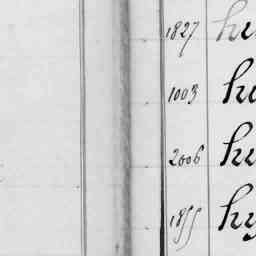 1827 hu
1003 hu
2006 hu
1855 hy